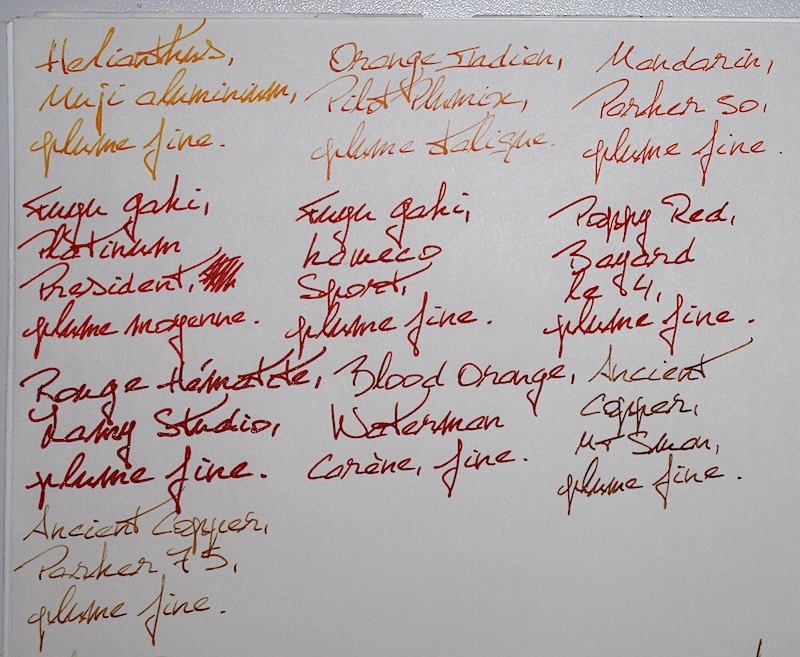 Helianthus,
Muji aluminium,
plume fine.
Orange Indien,
Pilot Plumix,
plume italique.
Mandarin,
Parker 50,
plume fine.
Fuyu gaki,
Platinum
President,
plume moyenne.
Fuyu gaki,
Kaweco
Sport,
plume fine.
Poppy Red,
Bayard
le 84,
plume fine.
Rouge Hématite,
Lamy Studio,
plume fine.
Blood Orange,
Waterman
Carène, fine.
Ancient
Copper,
plume fine.
Ancient Copper,
Parker 75,
plume fine.